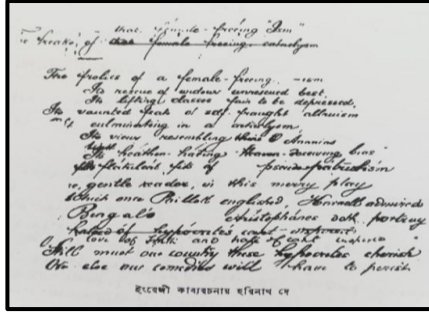 that "female-freeing Ism"
The freaks of female freeing cataclysm
The frolics of a female-freeing -ism
Its rescue of widows unrescued best,
Its lifting classes fain to be depressed,
Its vaunted feats of self-fraught altruism
culminating in a cataclysm,
Its views resembling Ananias
Its heathen-hating bias
Its flatulent fits of pseudo-patriotism
gentle reader, in this merry play
Which once englished, admirers
Bengal's Aristophanes doth portray
love of truth and hate of cant
Still must our country these hypocrites cherish
Or else our comedies will have to perish
ইংরেজী কাব্যরচনায় হরিনাথ দে